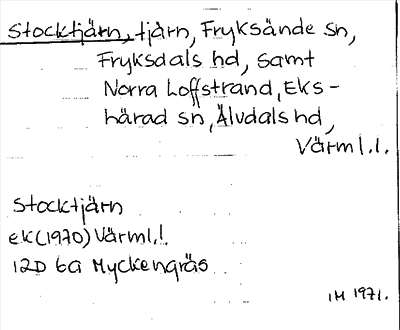 Stocktjärn, tjärn, Fryksände sn,
Fryksdals hd, samt
Norra Loffstrand, Eks-
härad sn, Älvdals hd,
Värml.l.
Stocktjärn
ek (1970) Värml.!
12D 6a Myckengräs
IM 1971.